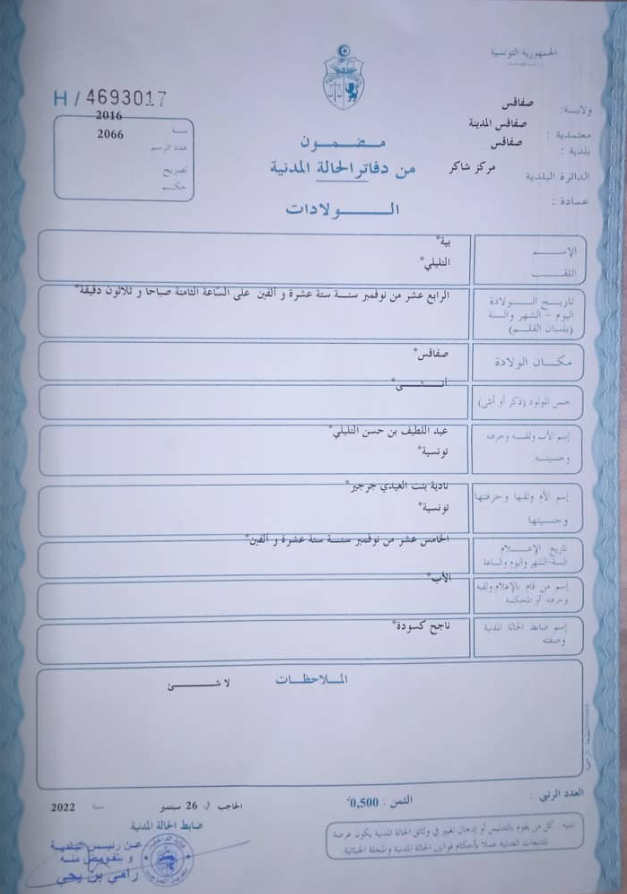 الجمهورية التونسية
H / 4693017
ولاية: صفاقس
معتمدية : صفاقس المدينة
بلدية : صفاقس
الدائرة البلدية مركز شاكر
عمادة :
سنة 2016
عدد الرسم 2066
تصريح
حكم
مضمون
من دفاتر الحالة المدنية
الولادات
الإسم بية*
اللقب التليلي*
تاريخ الولادة الرابع عشر من نوفمبر سنة ستة عشرة و ألفين على الساعة الثامنة صباحا و ثلاثون دقيقة*
اليوم - الشهر والسنة
(بلسان القلم)
مكان الولادة صفاقس*
جنس المولود (ذكر أو أنثى) أنثى*
إسم الأب ولقبه وحرفته عبد اللطيف بن حسن التليلي*
وجنسيته تونسية*
إسم الأم ولقبها وحرفتها نادية بنت العيدي جرجير*
وجنسيتها تونسية*
تاريخ الإعلام الخامس عشر من نوفمبر سنة ستة عشرة و ألفين*
السنة-الشهر واليوم والساعة
إسم من قام بالإعلام ولقبه الأب*
وحرفته أو المحكمة
إسم ضابط الحالة المدنية ناجح كسودة*
وصفته
الملاحظات
لا شئ
العدد الرتبي :
الثمن : 0,500د
الحاجب في 26 سبتمبر سنة 2022
ضابط الحالة المدنية
تنبيه كل من يقوم بالتدليس أو إدخال تغيير في وثائق الحالة المدنية يكون عرضة
للتتبعات العدلية عملا بأحكام قوانين الحالة المدنية والمجلة الجنائية.
عن رئيس البلدية
و بتفويض منه
رامي بن يحي